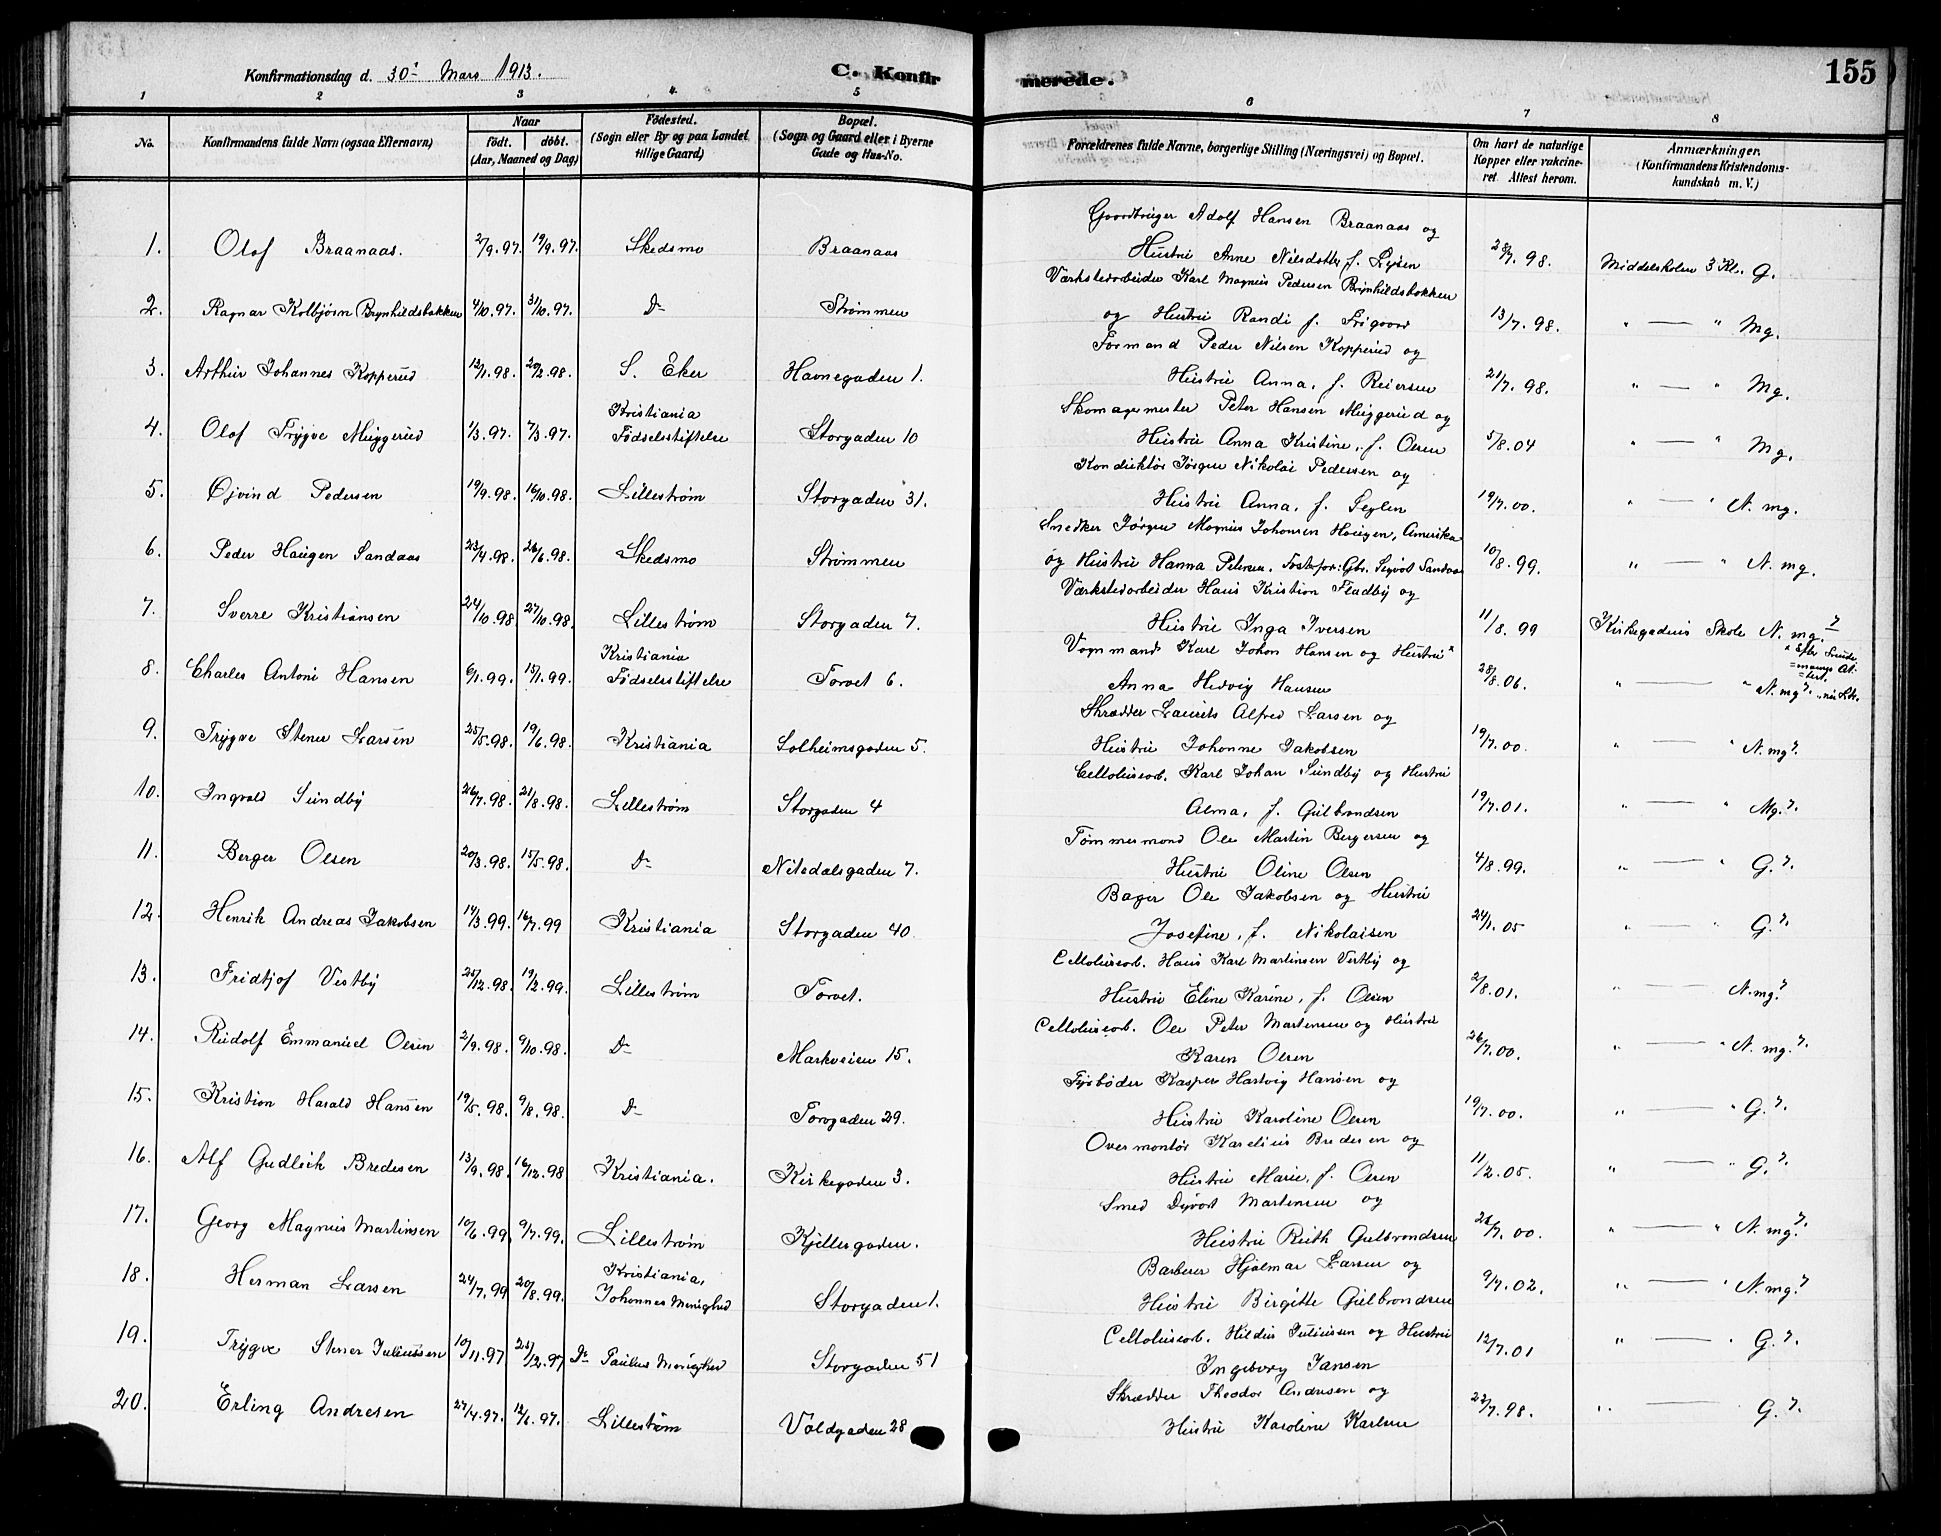 Konfirmationsdag d. 30' Mars 1913. C. Konfirmerede. 155
1 2 3 4 5 6 7 8
No. Konfirmandens fulde Navn (ogsaa Efternavn) Naar født. døbt. (Aar, Maaned og Dag) Fødested. (Sogn eller By og paa Landet tillige Gaard) Bopæl. (Sogn og Gaard eller i Byerne Gade og Hus-No. Forældrenes fulde Navne, borgerlige Stilling (Næringsvei) og Bopæl. Om havt de naturlige Kopper eller vakcineret. Attest herom. Anmærkninger. (Konfirmandens Kristendomskundskab m. V.)
1. Olaf Braanaas. 2/9.97. 19/9.97. Skedsmo Braanaas Gaardbruger Adolf Hansen Braanaas og
Hustru Anne Nilsdatter f. 28/7.98. Middelskolen 3 Kl. G.
2. Ragnar Kolbjørn Brynhildsbakken 4/10.97. 31/10.97. Do Strømmen Værkstedarbeider Karl Magnus Pedersen Brynhildsbakken
og Hustru Randi f. 13/7.98. " — " Mg.
3. Arthur Johannes Kopperud 12/1.98. 20/2.98. S. Eker Havnegaden 1. Formand Peder Nilsen Kopperud og
Hustru Anna, f. Reiersen 21/7.98. " — " Mg.
4. Olaf Trygve Muggerud 1/3.97. 7/3.97. Kristiania Fødselsstiftelse Storgaden 10 Skomagermester Peter Hansen Muggerud og
Hustru Anna Kristine, f. Olsen 5/8.04 " — " Mg.
5. Øjvind Pedersen 19/9.98. 16/10.98. Lillestrøm Storgaden 31. Konduktør Jørgen Nikolai Pedersen og
Hustru Anna, f. 19/7.00. " — " N. mg.
6. Peder Haugen Sandaas 23/4.98. 26/6.98. Skedsmo Strømmen Snedker Jørgen Magnus Johansen Haugen, Amerika
og Hustru Hanna Petersen. Fosterfor: Gbr. Sigvat Sandaas 10/8.99. " — " N. mg.
7. Sverre Kristiansen 24/10.98 27/10.98. Lillestrøm Storgaden 7. Værkstedarbeider Hans Kristian Fladby og
Hustru Inga Iversen 11/8.99 Kirkegadens Skole N. mg.
8. Charles Antoni Hansen 6/1.99. 15/1.99. Kristiania Fødselsstiftelse Torvet 6. Vognmand Karl Johan Hansen og Hustru
Anna Hedvig Hansen 28/8.06. " — " N. mg.
9. Trygve Stener Larsen 25/5.98. 19/6.98. Kristiania Solheimsgaden 5. Skrædder Laurits Alfred Larsen og
Hustru Johanne Jakobsen 19/7.00. " — " N. mg.
10. Ingvald Sundby 26/7.98. 21/8.98. Lillestrøm Storgaden 4 Cellulosearb. Karl Johan Sundby og Hustru
Alma, f. Gulbrandsen 19/7.01. " — " Mg.
11. Berger Olsen 20/3.98. 15/5.98. Do Nitedalsgaden 7. Tømmermand Ole Martin Bergersen og
Hustru Oline Olsen 4/8.99. " — " G.
12. Henrik Andreas Jakobsen 14/3.99. 16/7.99 Kristiania Storgaden 40 Bager Ole Jakobsen og Hustru
Josefine, f. Nikolaisen 24/1.05 " — " G.
13. Fridtjof Vestby 25/12.98. 19/2.99. Lillestrøm Torvet. Cellulosearb. Hans Karl Martinsen Vestby og
Hustru Eline Karine, f. Olsen 2/8.01. " — N. mg.
14. Rudolf Emmanuel Olsen 2/9.98. 9/10.98. Do Markveien 15. Cellulosearb. Ole Peter Martensen og Hustru
Karen Olsen 26/7.00. " — " N. mg.
15. Kristian Harald Hansen 19/5.98. 9/8.98. Do Torvgaden 29. Fyrbøder Kasper Hartvig Hansen og
Hustru Karoline Olsen 19/7.00. " — " G.
16. Alf Gudleik Bredesen 13/9.98. 16/12.98 Kristiania. Kirkegaden 3. Overmontør Karelius Bredesen og
Hustru Marie, f. Olsen 11/2.05. " — " G.
17. Georg Magnus Martinsen 10/6.99. 9/7.99. Lillestrøm Kjellergaden. Smed Dyvart Martensen og
Hustru Ruth Gulbrandsen 26/7.00. " — " N. mg.
18. Herman Larsen 24/7.99 20/8.99. Kristiania, Johannes Menighed Storgaden 1. Barberer Hjalmar Larsen og
Hustru Birgitte Gulbrandsen 9/7.02. " — " N. mg.
19. Trygve Stener Juliussen 10/11.97 25/12.97 Do Paulus Menighed Storgaden 51 Cellulosearb. Hildus Juliussen og Hustru
Ingeborg Jansen 12/7.01 " — " G.
20. Erling Andresen 27/4.97. 12/6.97. Lillestrøm Voldgaden 28 Skrædder Theodor Andresen og
Hustru Karoline Karlsen 22/7.98. " — G.